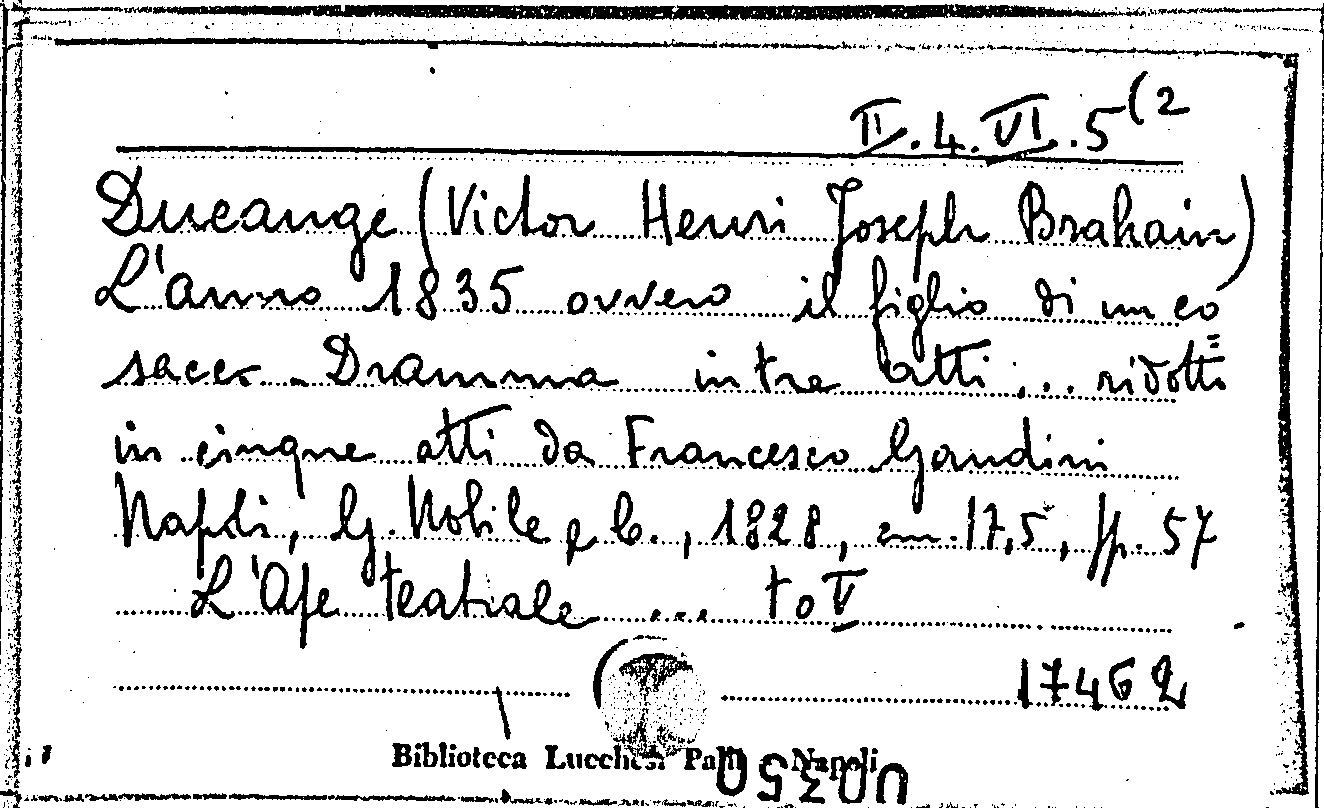 II.4.VI.5(2
Ducange (Victor Henri Joseph Brahain)
L'anno 1835 ovvero il figlio di un co=
sacco. Dramma in tre atti ... ridotti
in cinque atti da Francesco Gandini
Napoli, G. Nobile e C., 1828, cm. 17,5, pp. 57
L'Ape teatrale ... to V
17462
Biblioteca Lucchesi Palli Napoli